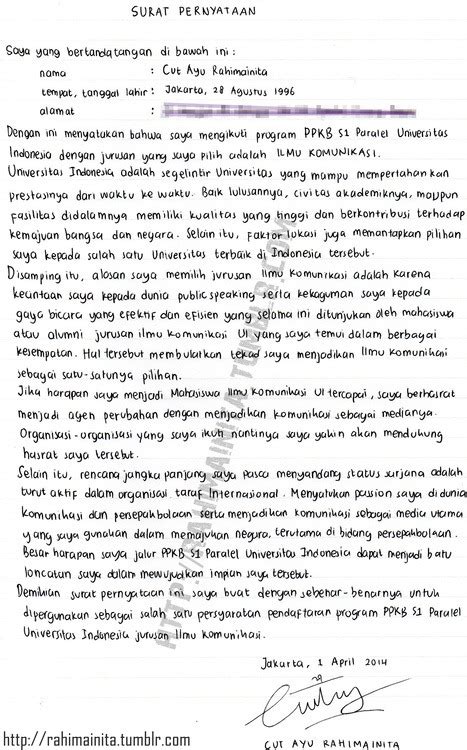 SURAT PERNYATAAN
Saya yang bertandatangan di bawah ini :
nama : Cut Ayu Rahimainita
tempat, tanggal lahir : Jakarta, 28 Agustus 1996
alamat :
Dengan ini menyatakan bahwa saya mengikuti program PPKB S1 Paralel Universitas
Indonesia dengan jurusan yang saya pilih adalah ILMU KOMUNIKASI.
Universitas Indonesia adalah segelintir Universitas yang mampu mempertahankan
prestasinya dari waktu ke waktu. Baik lulusannya, civitas akademiknya, maupun
fasilitas didalamnya memiliki kualitas yang tinggi dan berkontribusi terhadap
kemajuan bangsa dan negara. Selain itu, faktor lokasi juga memantapkan pilihan
saya kepada salah satu Universitas terbaik di Indonesia tersebut.
Disamping itu, alasan saya memilih jurusan Ilmu Komunikasi adalah karena
kecintaan saya kepada dunia public speaking serta kekaguman saya kepada
gaya bicara yang efektif dan efisien yang selama ini ditunjukan oleh mahasiswa
atau alumni jurusan ilmu komunikasi UI yang saya temui dalam berbagai
kesempatan. Hal tersebut membulatkan tekad saya menjadikan Ilmu Komunikasi
sebagai satu-satunya pilihan.
Jika harapan saya menjadi Mahasiswa Ilmu Komunikasi UI tercapai, saya berhasrat
menjadi agen perubahan dengan menjadikan komunikasi sebagai medianya.
Organisasi-organisasi yang saya ikuti nantinya saya yakin akan mendukung
hasrat saya tersebut.
Selain itu, rencana jangka panjang saya pasca menyandang status sarjana adalah
turut aktif dalam organisasi taraf Internasional. Menyatukan passion saya di dunia
komunikasi dan persepakbolaan serta menjadikan komunikasi sebagai media utama
yang saya gunakan dalam memajukan negara, terutama di bidang persepakbolaan.
Besar harapan saya jalur PPKB S1 Paralel Universitas Indonesia dapat menjadi batu
loncatan saya dalam mewujudkan impian saya tersebut.
Demikian surat pernyataan ini saya buat dengan sebenar-benarnya untuk
dipergunakan sebagai salah satu persyaratan pendaftaran program PPKB S1 Paralel
Universitas Indonesia jurusan Ilmu Komunikasi.
Jakarta, 1 April 2014
CUT AYU RAHIMAINITA
HTTP://RAHIMAINITA.TUMBLR.COM
http://rahimainita.tumblr.com